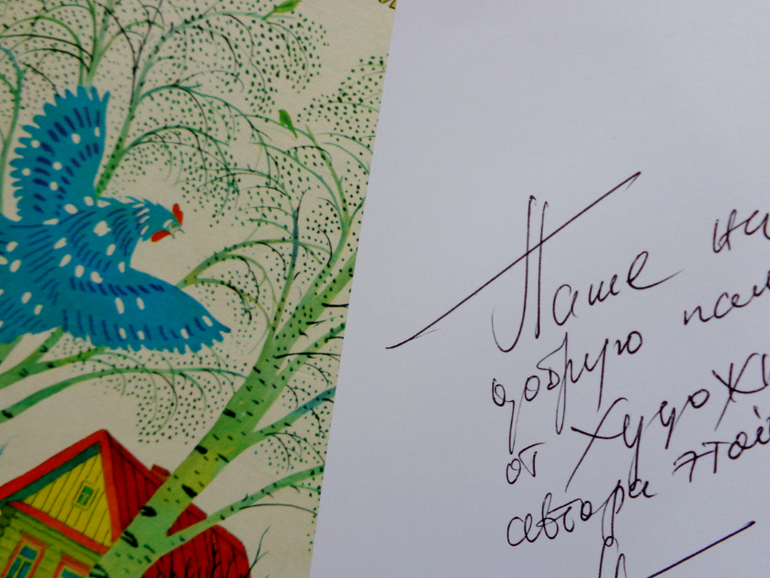 Наше на
добрую пам
от Художн
автора этой